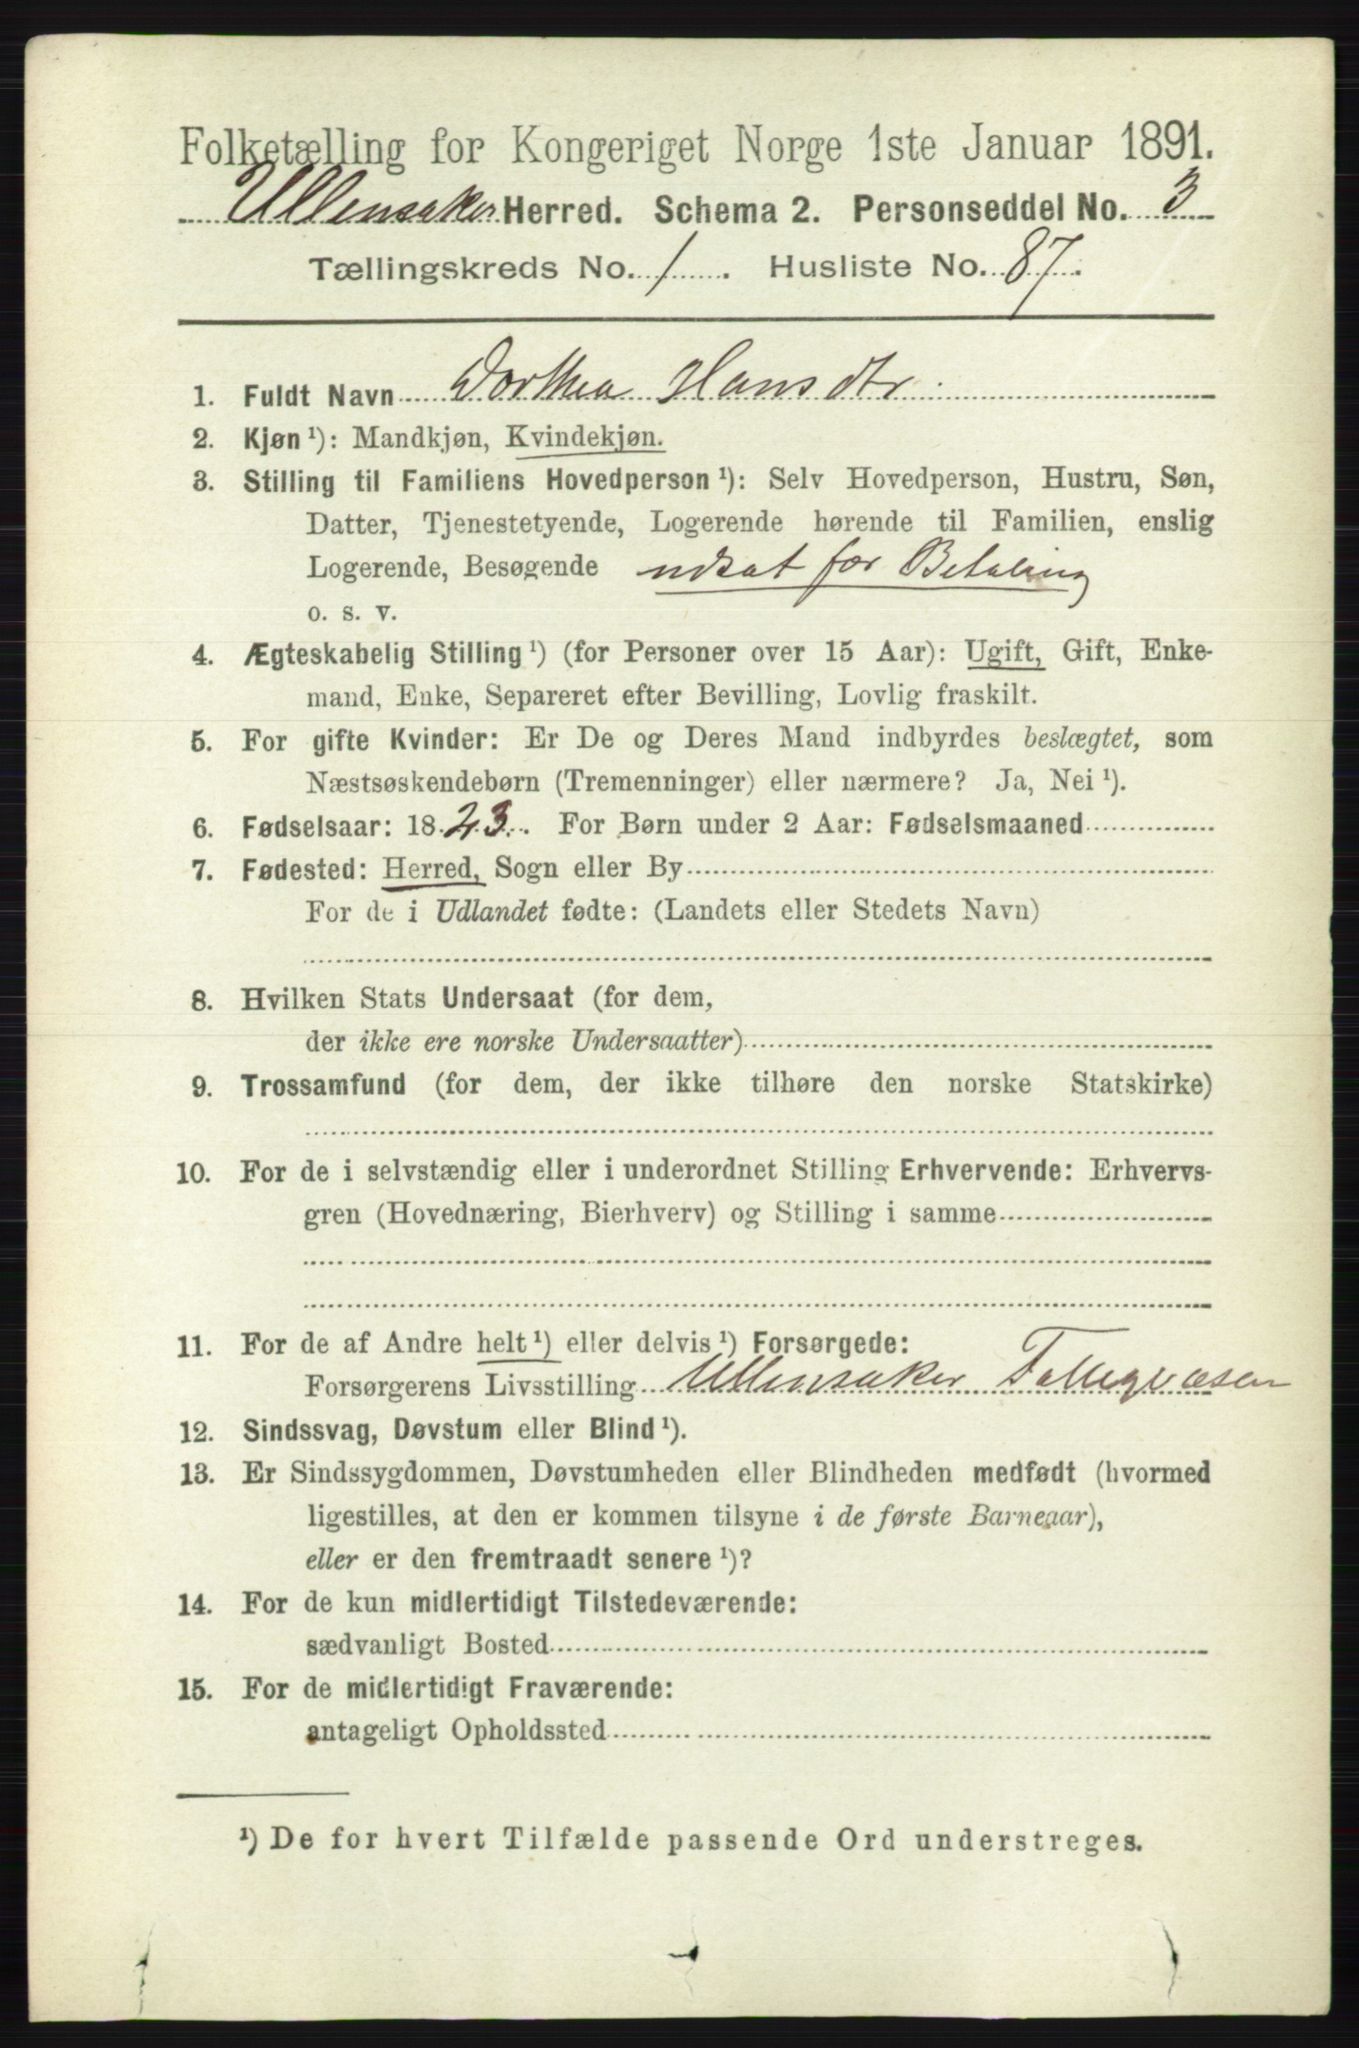 Folketælling for Kongeriget Norge 1ste Januar 1891.
Ullensaker Herred. Schema 2. Personseddel No. 3
Tællingskreds No. 1. Husliste No. 87.
1. Fuldt Navn Dorthea Hansdtr.
2. Kjøn ¹): Mandkjøn, Kvindekjøn.
3. Stilling til Familiens Hovedperson ¹): Selv Hovedperson, Hustru, Søn,
Datter, Tjenestetyende, Logerende hørende til Familien, enslig
Logerende, Besøgende udsat for Betaling
o. s. v.
4. Ægteskabelig Stilling ¹) (for Personer over 15 Aar): Ugift, Gift, Enke-
mand, Enke, Separeret efter Bevilling, Lovlig fraskilt.
5. For gifte Kvinder: Er De og Deres Mand indbyrdes beslægtet, som
Næstsøskendebørn (Tremenninger) eller nærmere? Ja, Nei ¹).
6. Fødselsaar: 1823. For Børn under 2 Aar: Fødselsmaaned
7. Fødested: Herred, Sogn eller By
For de i Udlandet fødte: (Landets eller Stedets Navn)
8. Hvilken Stats Undersaat (for dem,
der ikke ere norske Undersaatter)
9. Trossamfund (for dem, der ikke tilhøre den norske Statskirke)
10. For de i selvstændig eller i underordnet Stilling Erhvervende: Erhvervs-
gren (Hovednæring, Bierhverv) og Stilling i samme
11. For de af Andre helt ¹) eller delvis ¹) Forsørgede:
Forsørgerens Livsstilling Ullensaker Fattigvæsen
12. Sindssvag, Døvstum eller Blind ¹).
13. Er Sindssygdommen, Døvstumheden eller Blindheden medfødt (hvormed
ligestilles, at den er kommen tilsyne i de første Barneaar),
eller er den fremtraadt senere ¹)?
14. For de kun midlertidigt Tilstedeværende:
sædvanligt Bosted
15. For de midlertidigt Fraværende:
antageligt Opholdssted
¹) De for hvert Tilfælde passende Ord understreges.